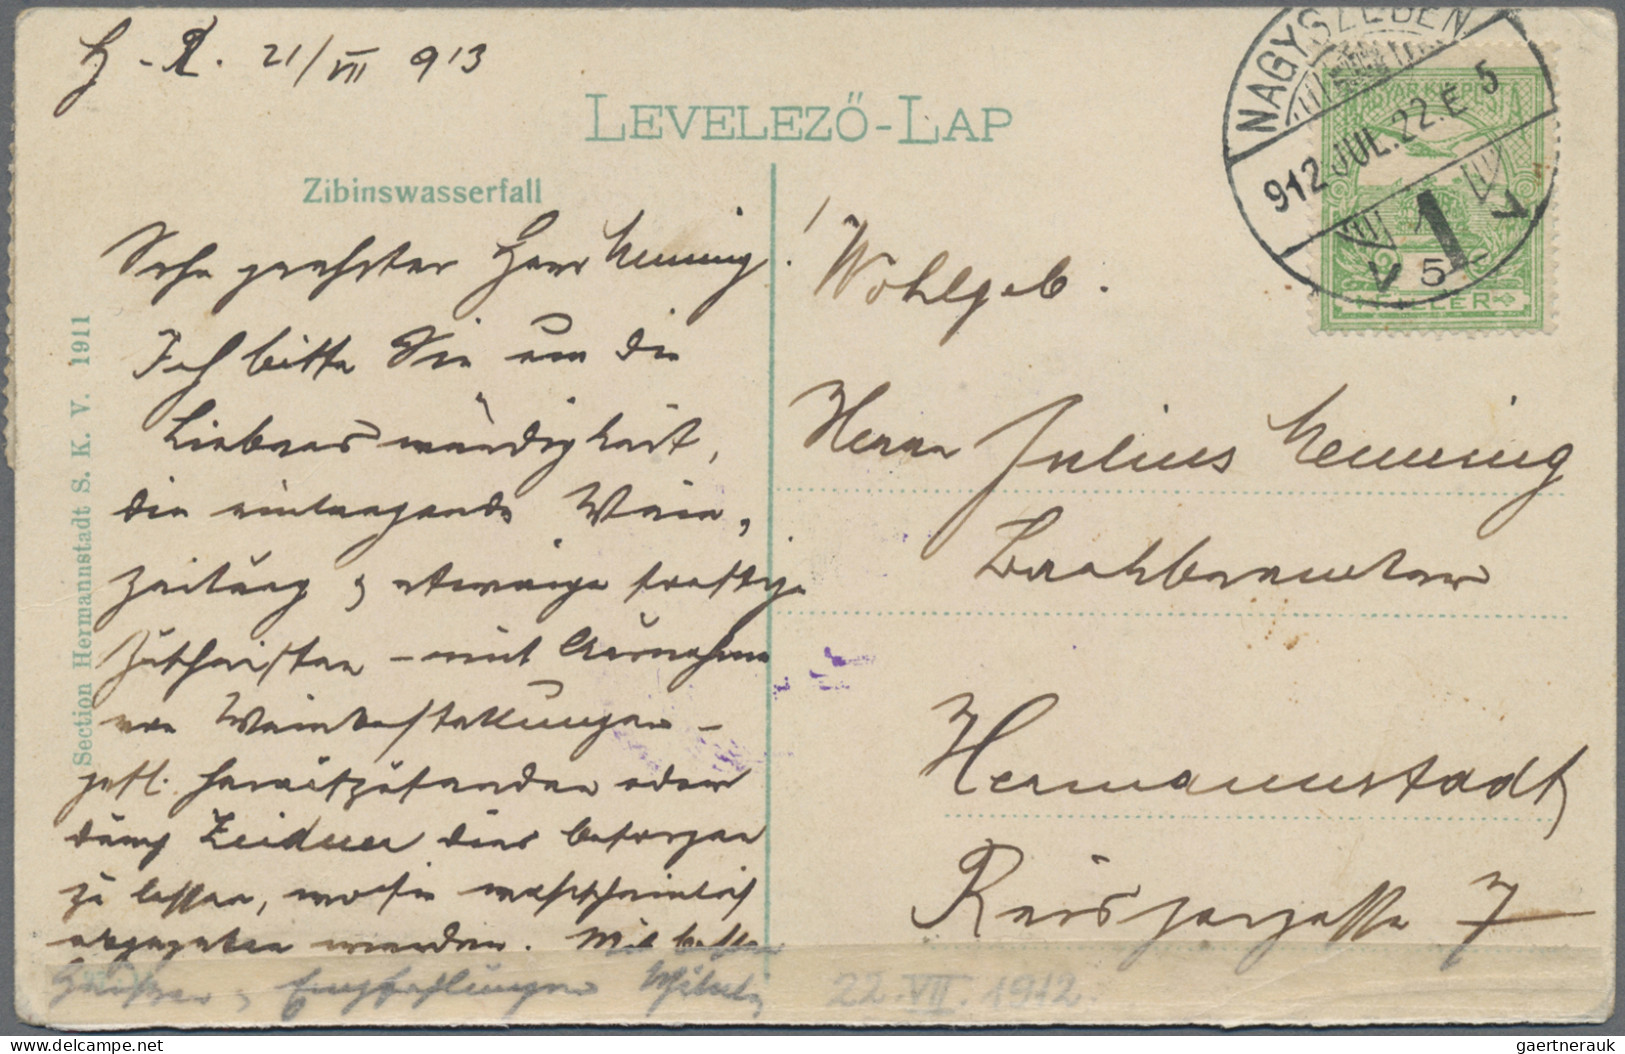 H-R. 21/VII 913
LEVELEZŐ-LAP
Zibinswasserfall
NAGYSZEBEN
912 JUL.22.E 5
1
V 5 V
MAGYAR KIR. POSTA
FILLÉR
Section Hermannstadt S. K. V. 1911
Sehr geehrter Herr Henning!
Ich bitte Sie um die
Liebenswürdigkeit,
die einlangende Wein-
zeitung & etwaige sonstige
Zuschriften – mit Ausnahme
von Weinbestellungen –
gefl. heraufzusenden oder
durch Zeidner dies besorgen
zu lassen, wo sie wahrscheinlich
abgegeben werden. Mit besten
Grüßen & Empfehlungen
Wohlgeb.
Herrn Julius Henning
Bankbeamter
Hermannstadt
Reispergasse 7
22.VII.1912.
gaertnerauk